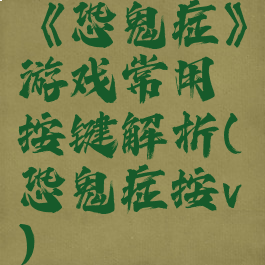 《恐鬼症》
游戏常用
按键解析(
恐鬼症按v
)